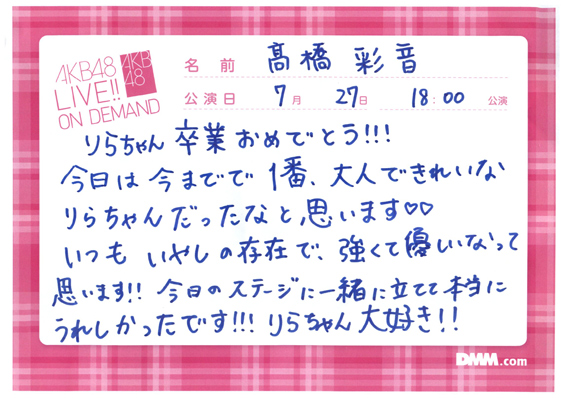 AKB48
LIVE!!
ON DEMAND
AKB
48
名前 髙橋 彩音
公演日 7月 27日 18:00 公演
りらちゃん 卒業 おめでとう!!!
今日は 今までで 1番、大人できれいな
りらちゃんだったなと思います♡♡
いつも いやしの存在で、強くて優しいなって
思います!! 今日のステージに一緒に立てて本当に
うれしかったです!!! りらちゃん大好き!!
DMM.com